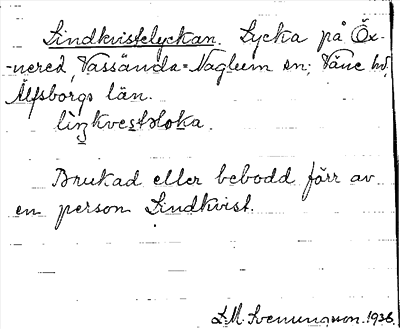 Lindkvistlyckan. Lycka på Öx-
-nered, Vassända-Naglum sn; Väne hd,
Älfsborgs län.
Brukad eller bebodd förr av
en person Lindkvist.
L.M. Svenungsson. 1936.